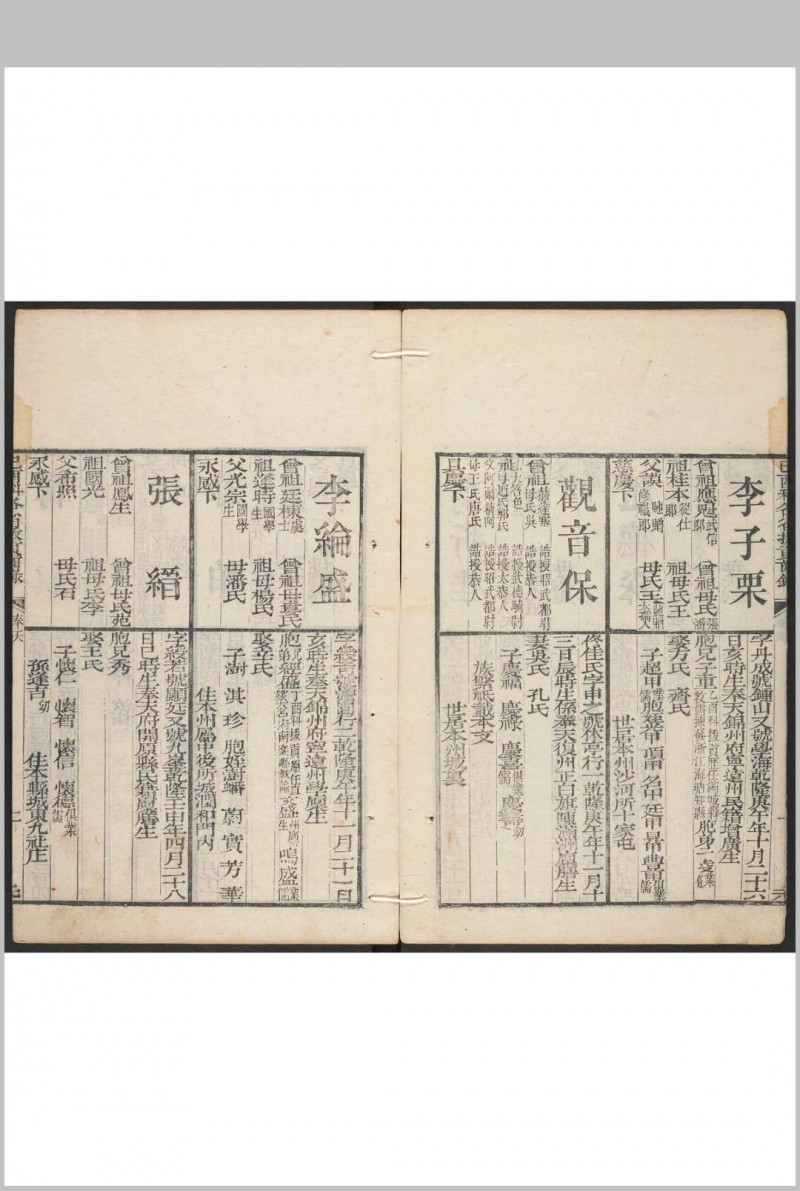 李子栗
曾祖應魁武信郎 曾祖母氏張
祖桂本從仕郎 祖母氏王
父淏馳贈修職郎 母氏王馳贈
慈慶下
字丹成號鍾山又號學海乾隆庚午年十月二十六
日亥時生奉天錦州府寧遠州民籍增廣生
胞兄子重 胞身
娶方氏 齊氏
子超甲 胞姪
世居本州沙河所十家屯
觀音保
曾祖赫達塞 誥授昭武都尉
曾祖母氏吳 誥授恭人
祖 色 誥授武德騎尉
祖母趙氏郭氏 誥授太恭人
父阿爾 阿 誥授昭武都尉
母王氏唐氏 誥授恭人
具慶下
佟佳氏字申之號休亭行一乾隆庚午年十二月十
三日辰時生係奉天復州正白旗陳滿洲廩膳生
妻吳氏 孔氏
子慶福 慶祿 慶喜俱業儒 慶壽幼
族繁祗載本支
世居本州城裏
李綸盛
曾祖廷棟 曾祖母袁氏
祖逢時國學生 祖母楊氏
父光宗國學生 母潘氏
永感下
字綬 號 行二乾隆庚午年十一月二十一日
亥時生奉天錦州府寧遠州學廩生
胞兄經盛 弟 盛 鳴盛業儒
娶辛氏
子澍 淇 珍 胞姪澍 蔚 實 芳 華
住本州屬中後所城潤和門內
張縉
曾祖鳳生 曾祖母氏苑
祖國光 祖母氏李
父希照 母氏石
永感下
字綬若號顯廷又號九峯乾隆壬申年四月二十八
日巳時生奉天府開原縣民籍廩膳生
胞兄秀
娶王氏
子懷仁 懷智 懷信 懷德俱業儒
孫逢吉幼
住本縣城東九社庄
奉天